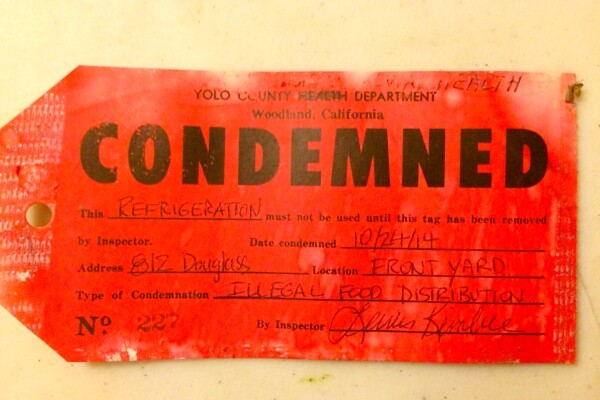 HEALTH
YOLO COUNTY HEALTH DEPARTMENT
Woodland, California
CONDEMNED
This REFRIGERATION must not be used until this tag has been removed
by Inspector. Date condemned 10/24/14
Address 812 Douglass Location FRONT YARD
Type of Condemnation ILLEGAL FOOD DISTRIBUTION
No. 227 By Inspector